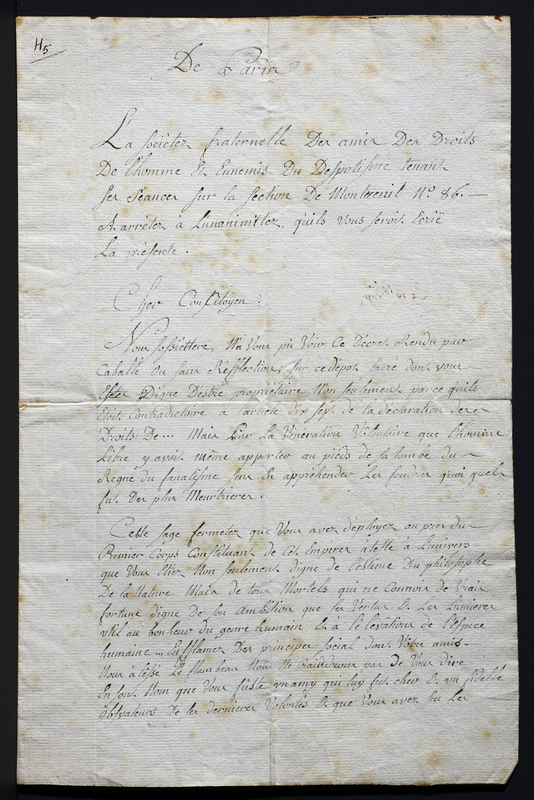 H5
De Paris
La sociétez fraternelle Des amis Des Droits
De l'homme & Ennemis Du Despotisme tenant
ses séances sur la section De Montreuil N.° 86.
A arrêtez à Lunanimitez, quils vous seroit Ecrië
La présente.
Cher Concitoyen:
Nous sossiettere, Na Vous pû Voir Ce Décret Rendu par
Caballe Ou sans Réffléction, sur ce dépot sacré dont vous
Estez Digne D'estre propriétaire Non seulement parce quils
Etoit Contradictoire a l'article Dix sept de la déclaration des
Droits De... Mais Par la Vénération Volontaire que l'homme
libre y avoit même apportez au pieds de la tombe du
Regne du fanatisme sans En appréhender Les foudres quoi quel
fut Des plus Meurtrieres.
Cette sage fermetez que Vous avez déployez au pres du
Premier Corps Constituant de Cet Empires atteste à Lunivers
que Vous Etiez Non seulement digne de l'estime Du philosophe
De la Nature Mais de tous Mortels qui ne Connois de Vrais
fortune digne de son ambition que les Vertus & Les Lumieres
util au bonheur du genre humain & à l'élévation de l'espece
humaine ... Enflamez Des principes social dont Votre amis
Nous à Laissé Le flambeau Nous Ne Craindrons pas de Vous dire
En tous Nom que Vous futte un amy qui luy fut cher & un fidelle
Observateurs De ses dernieres Volontés & que Vous avez seu Les